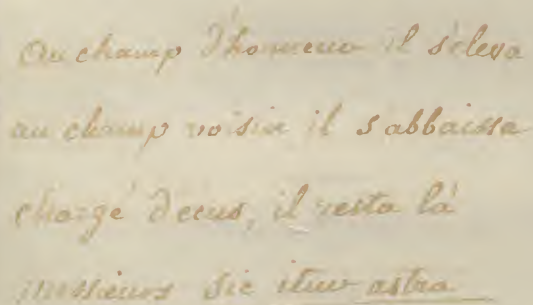 Au champ d'honneur il s'eleva
au champ voisin il s'abbaissa
chargé d'ecus, il resta là
messieurs sic itur astra